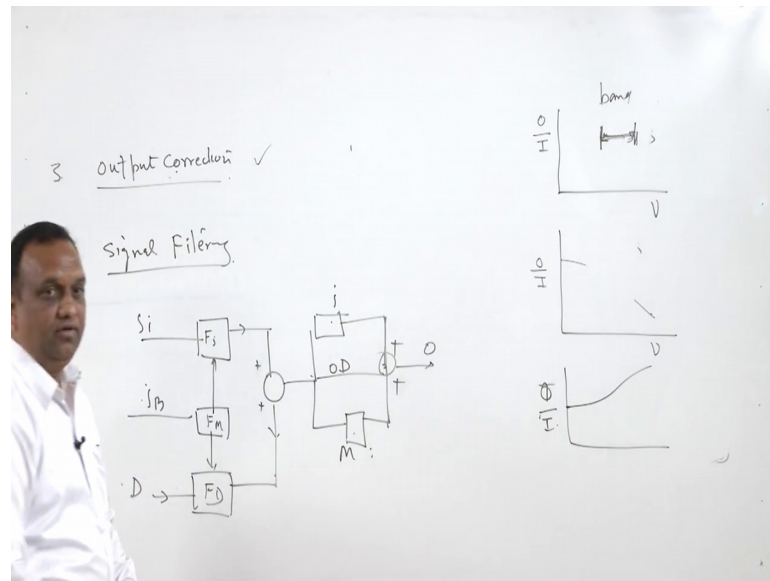 3 output Correction ✓
Signal Filering
Si
Fi
iB
FM
D
FD
+
+
i
OD
M i
+
+
O
band
O
I
i
V
O
I
V
O
I